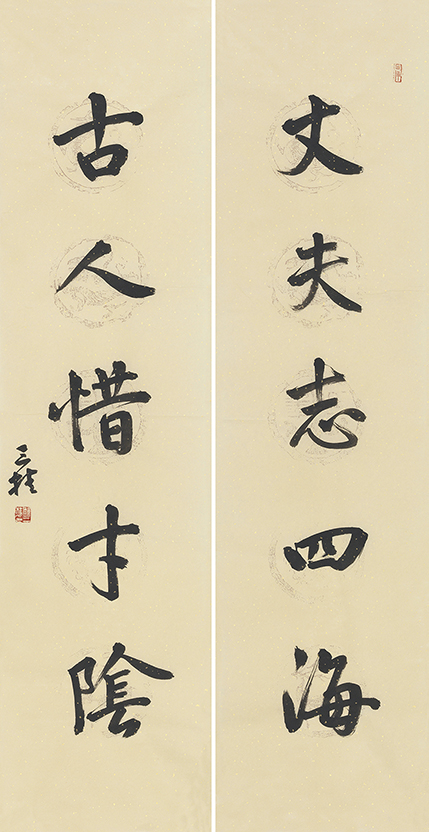 丈夫志四海
古人惜寸陰